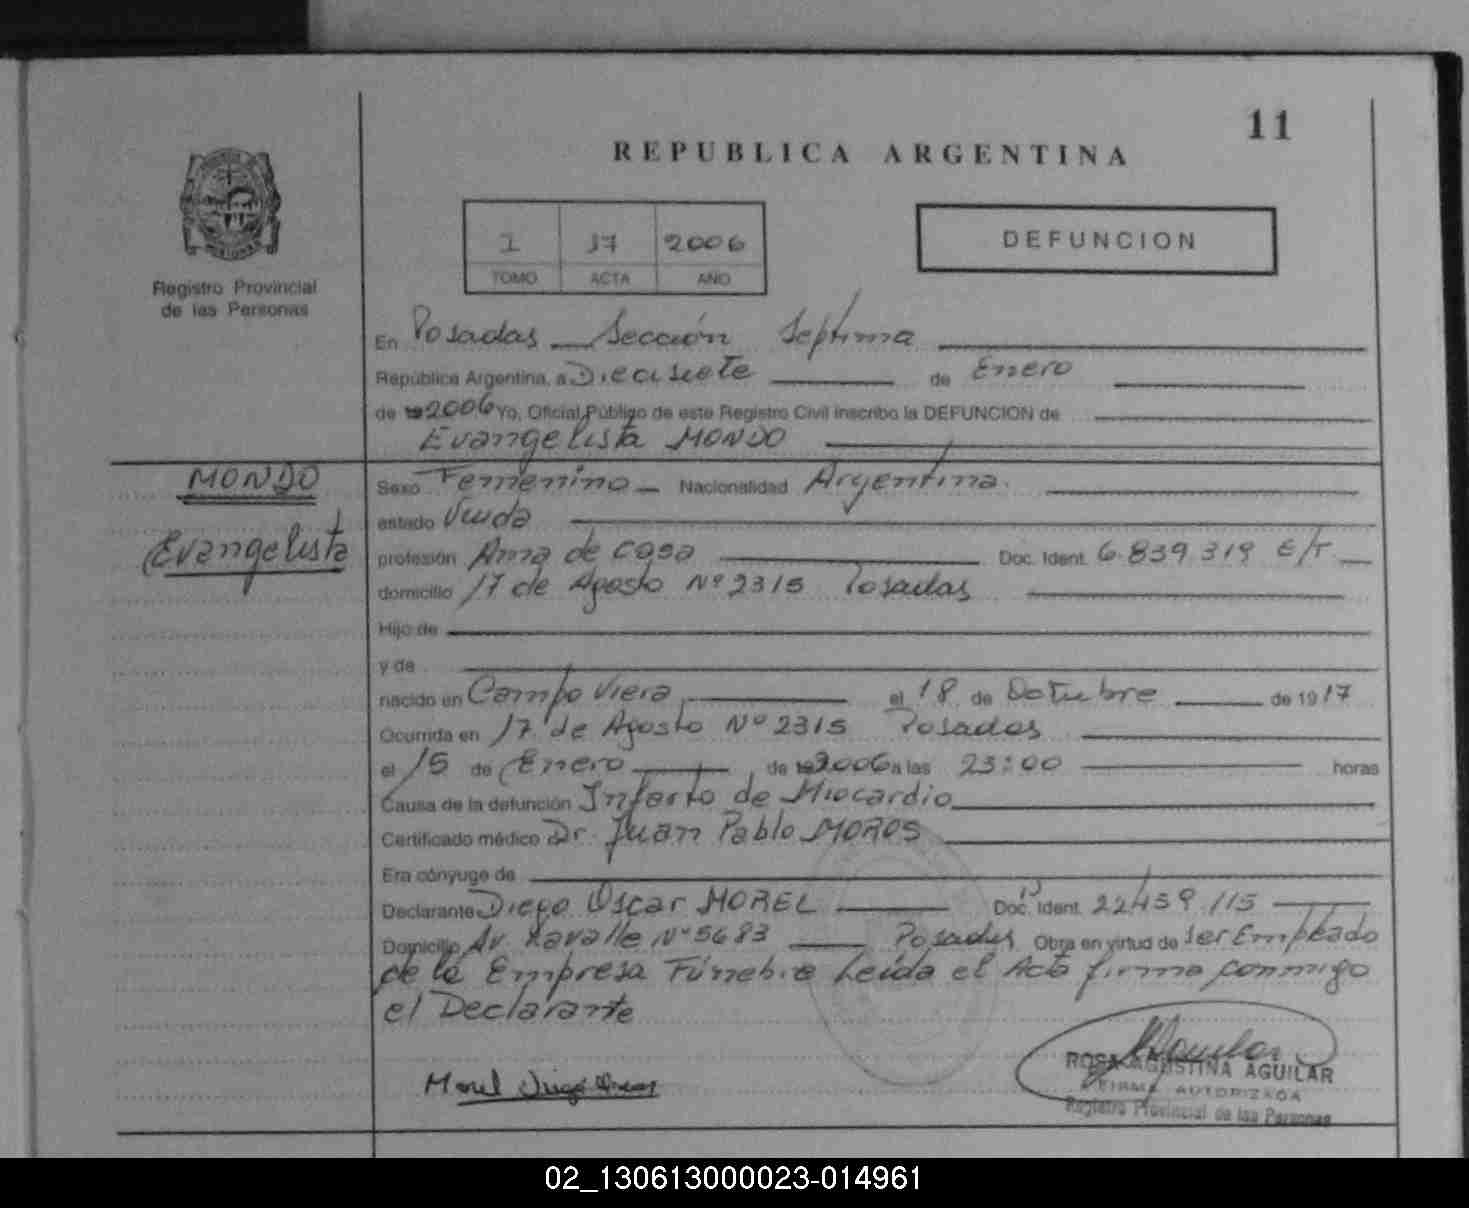 11
REPUBLICA ARGENTINA
1 17 2006
TOMO ACTA AÑO
DEFUNCION
Registro Provincial
de las Personas
En Posadas Sección Septima
República Argentina, a Diecisiete de Enero
de 2006 Yo, Oficial Público de este Registro Civil inscribo la DEFUNCION de
Evangelista MONDO
MONDO
Evangelista
Sexo Femenino Nacionalidad Argentina.
estado Viuda
profesión Ama de casa Doc. Ident. 6.839.319 E/T.
domicilio 17 de Agosto Nº 2315 Posadas
Hijo de
y de
nacido en Campo Viera el 18 de Octubre de 1917
Ocurrida en 17 de Agosto Nº 2315 Posadas
el 15 de Enero de 2006 a las 23:00 horas
Causa de la defunción Infarto de Miocardio
Certificado médico Dr. Juan Pablo MOROS
Era cónyuge de
Declarante Diego Oscar MOREL Doc. Ident. 22.459.115
Domicilio Av. Lavalle Nº 5683 Posadas Obra en virtud de ser Empleado
de la Empresa Fúnebre Leida el Acta firma conmigo
el Declarante
Morel Diego Oscar
ROSA AGUSTINA AGUILAR
FIRMA AUTORIZADA
Registro Provincial de las Personas
02_130613000023-014961